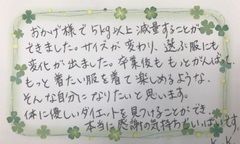 おかげ様で5kg以上減量することが
できました。サイズが変わり、選ぶ服にも
変化が出ました。卒業後も もとがんばって、
もっと着たい服を着て楽しめるような、
そんな自分になりたいと思います。
体に優しいダイエットを見つけることができ、
本当に感謝の気持ちでいっぱいです
K.K